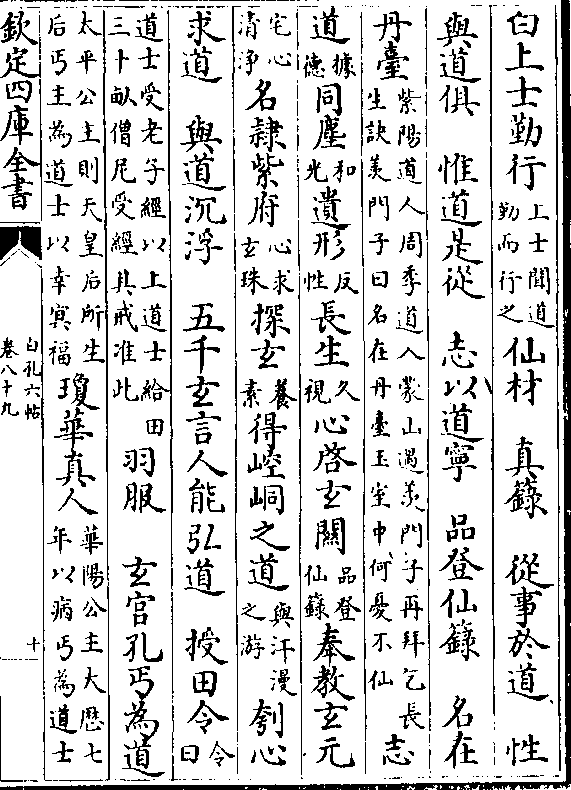 白上士勤行上士聞道勤而行之仙材　真籙　從事於道　性
與道俱　惟道是從　志以道寧　品登仙籙　名在
丹臺紫陽道人周季道入蒙山遇羡門子再拜乞長生訣羡門子曰名在丹臺玉室中何憂不仙志
道據德同塵和光遺形反性長生久視心啓玄關品登仙籙奉教玄元
宅心清浄名隷紫府心求玄珠探玄養素得崆峒之道與汗漫之游刳心
求道　與道沉浮　五千玄言人能弘道　授田令令曰
道士受老子經以上道士給田三十畝僧尼受經具戒准此羽服　玄宮孔丐為道
太平公主則天皇后所生后丐主為道士以幸冥福瓊華真人華陽公主大歷七年以病丐為道士
欽定四庫全書
白孔六帖
卷八十九
十